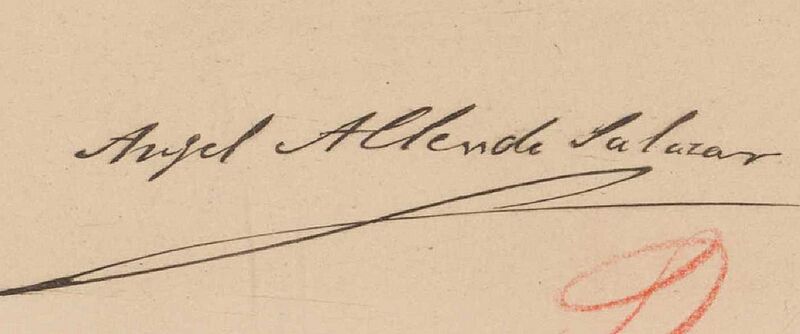 Angel Allende Salazar